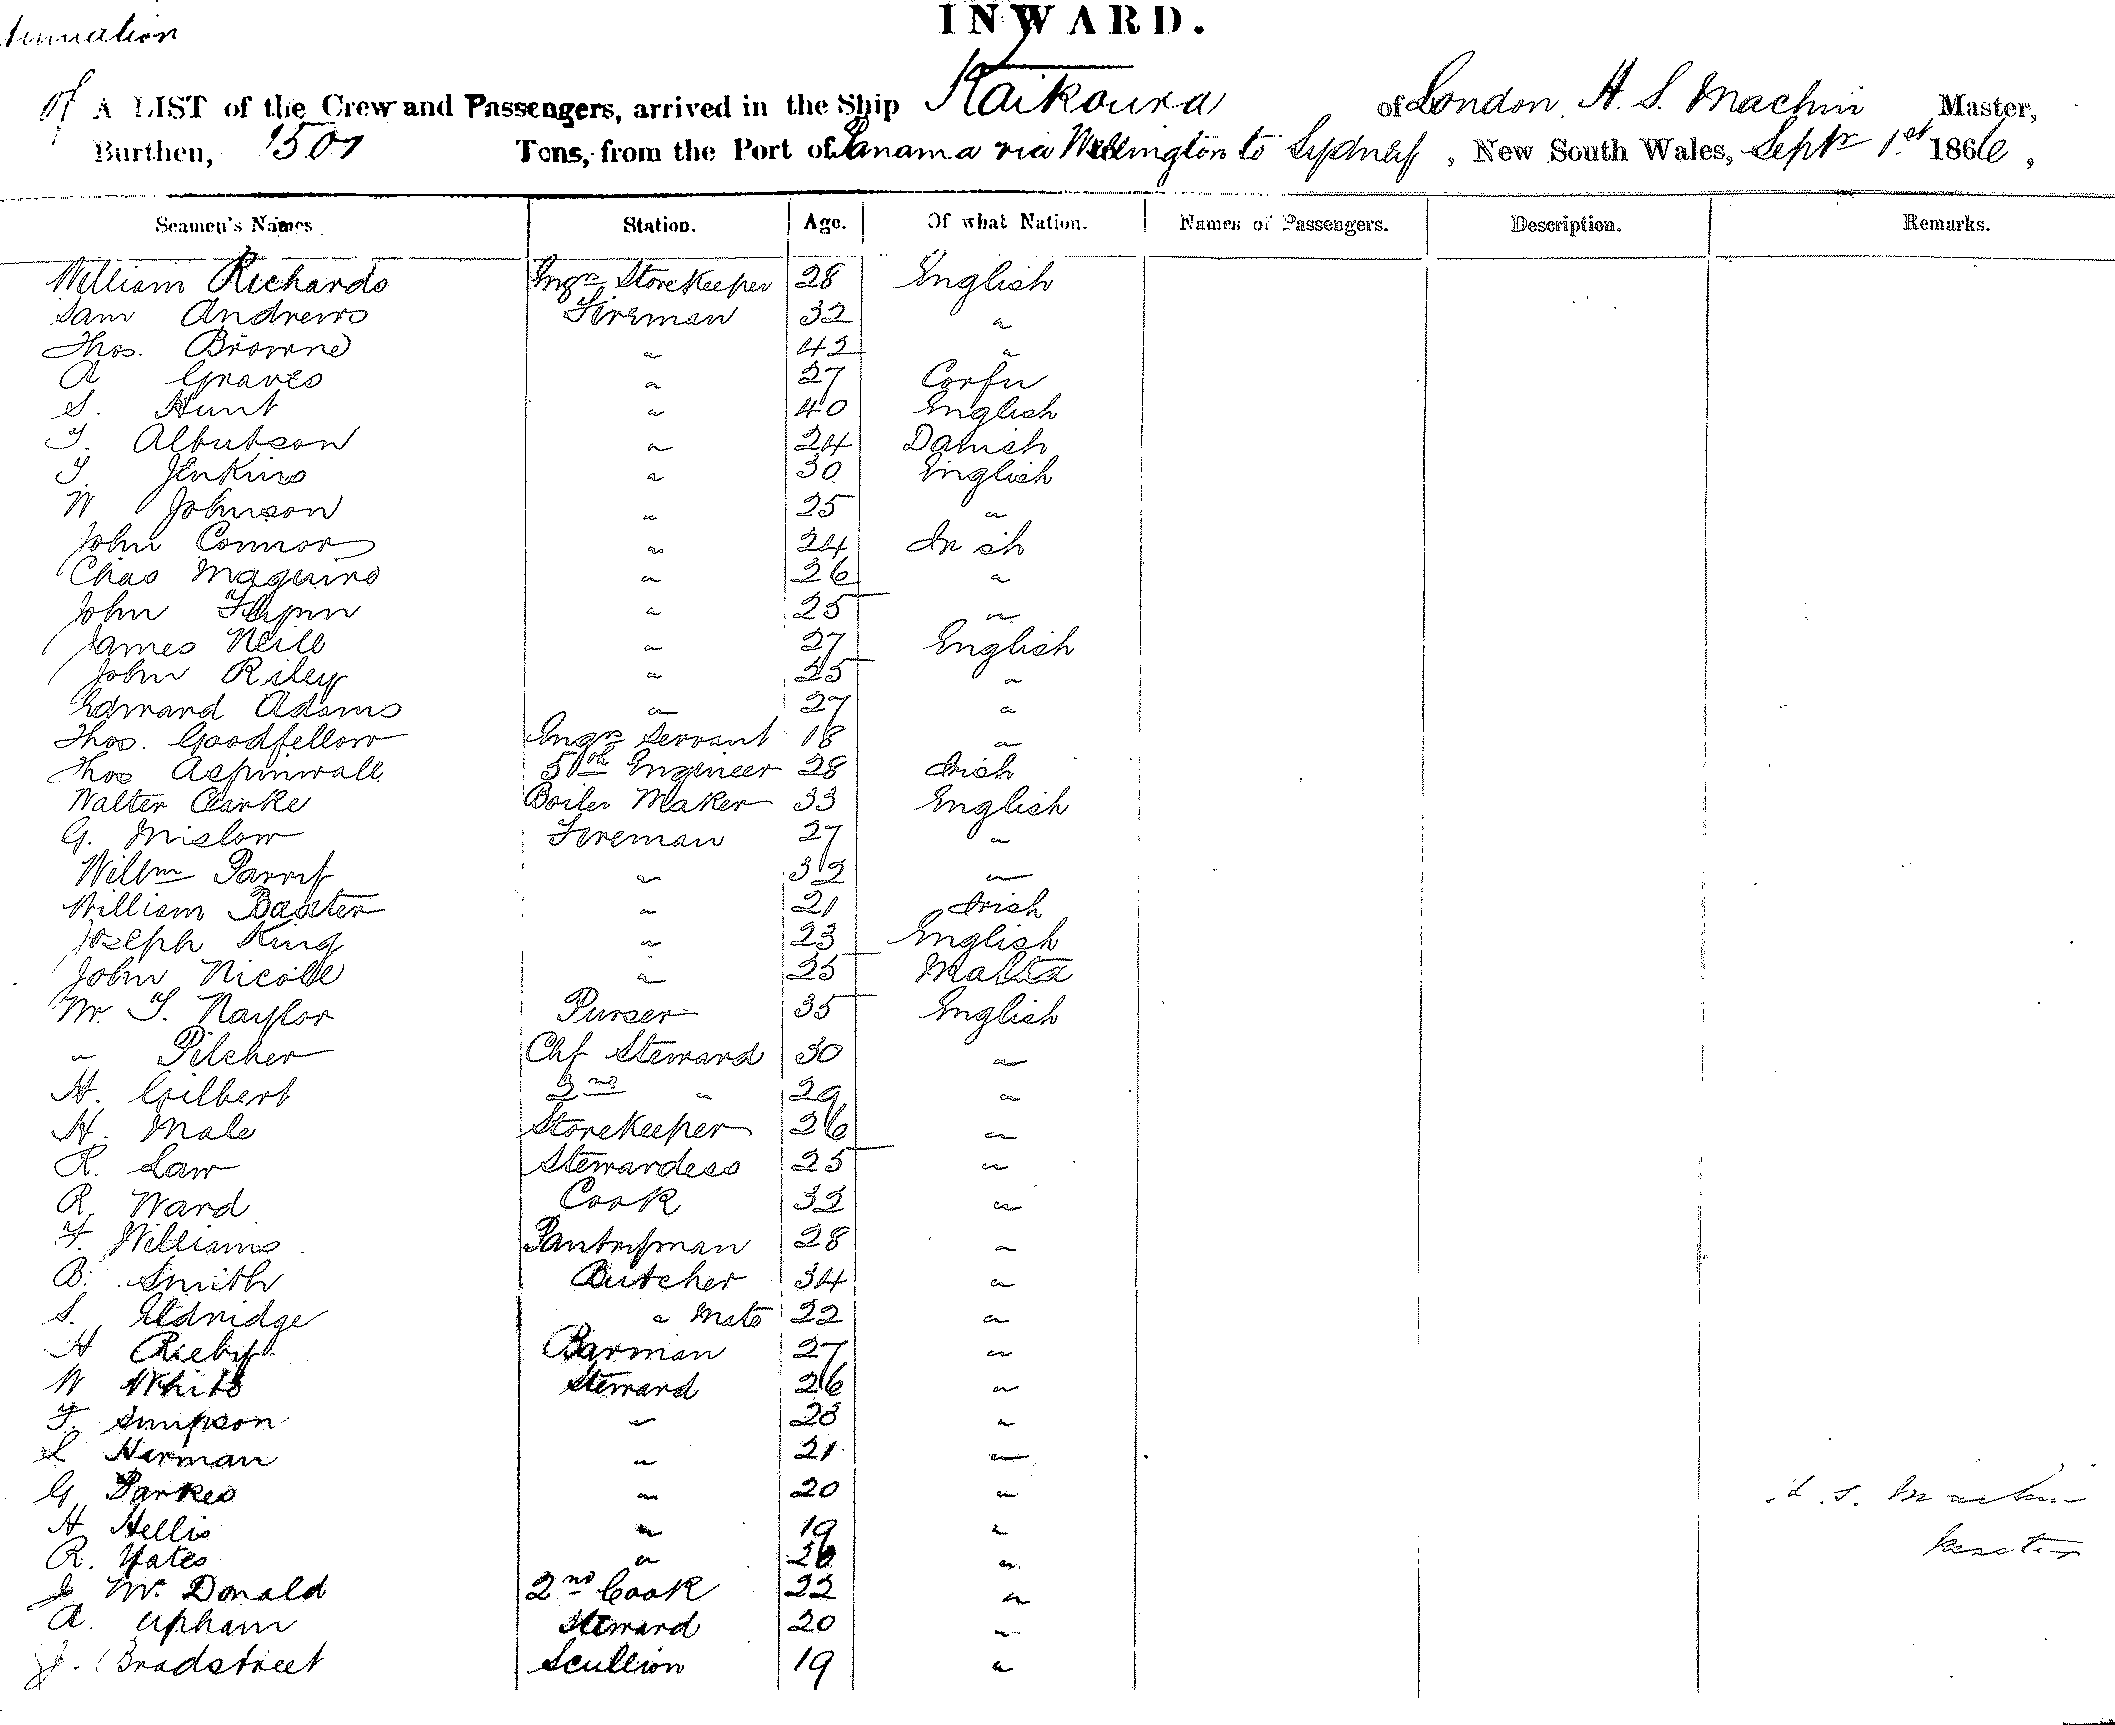 INWARD.
of A LIST of the Crew and Passengers, arrived in the Ship Kaikoura of London, H. S. Machin Master,
Burthen, 1501 Tons, from the Port of Panama via Wellington to Sydney, New South Wales, Septr 1st 1866,
Seamen's Names Station. Age. Of what Nation. Names of Passengers. Description. Remarks.
William Richards Engrs Storekeeper 28 English
Sam Andrews Fireman 32 "
Thos. Browne " 42 "
A Graves " 27 Corfu
S. Hunt " 40 English
T. Albutson " 24 Danish
T. Jenkins " 30 English
W Johnson " 25 "
John Connor " 24 Irish
Chas Maguire " 26 "
John Flynn " 25 "
James Neill " 27 English
John Riley " 25 "
Edward Adams " 27 "
Thos. Goodfellow Engrs Servant 18 "
Thos Aspinwall 5th Engineer 28 Irish
Walter Clarke Boiler Maker 33 English
G. Mislow Fireman 27 "
Willm Parrit " 32 "
William Baxter " 21 Irish
Joseph King " 23 English
John Nicole " 25 Malta
Mr. T. Naylor Purser 35 English
" Pilcher Chf Steward 30 "
H. Gilbert 2nd " 29 "
H. Male Storekeeper 26 "
R. Law Stewardess 25 "
R. Ward Cook 32 "
F. Williams Pantryman 28 "
B. Smith Butcher 34 "
S. Eldridge " Mate 22 "
H Rieby Barman 27 "
W White Steward 26 "
F. Simpson " 23 "
L Herman " 21 "
G Parkes " 20 "
H Hellis " 19 "
R. Yates " 26 "
J Mc Donald 2nd Cook 22 "
A. Upham Steward 20 "
J. Bradstreet Scullion 19 "
H. S. Machin
Master